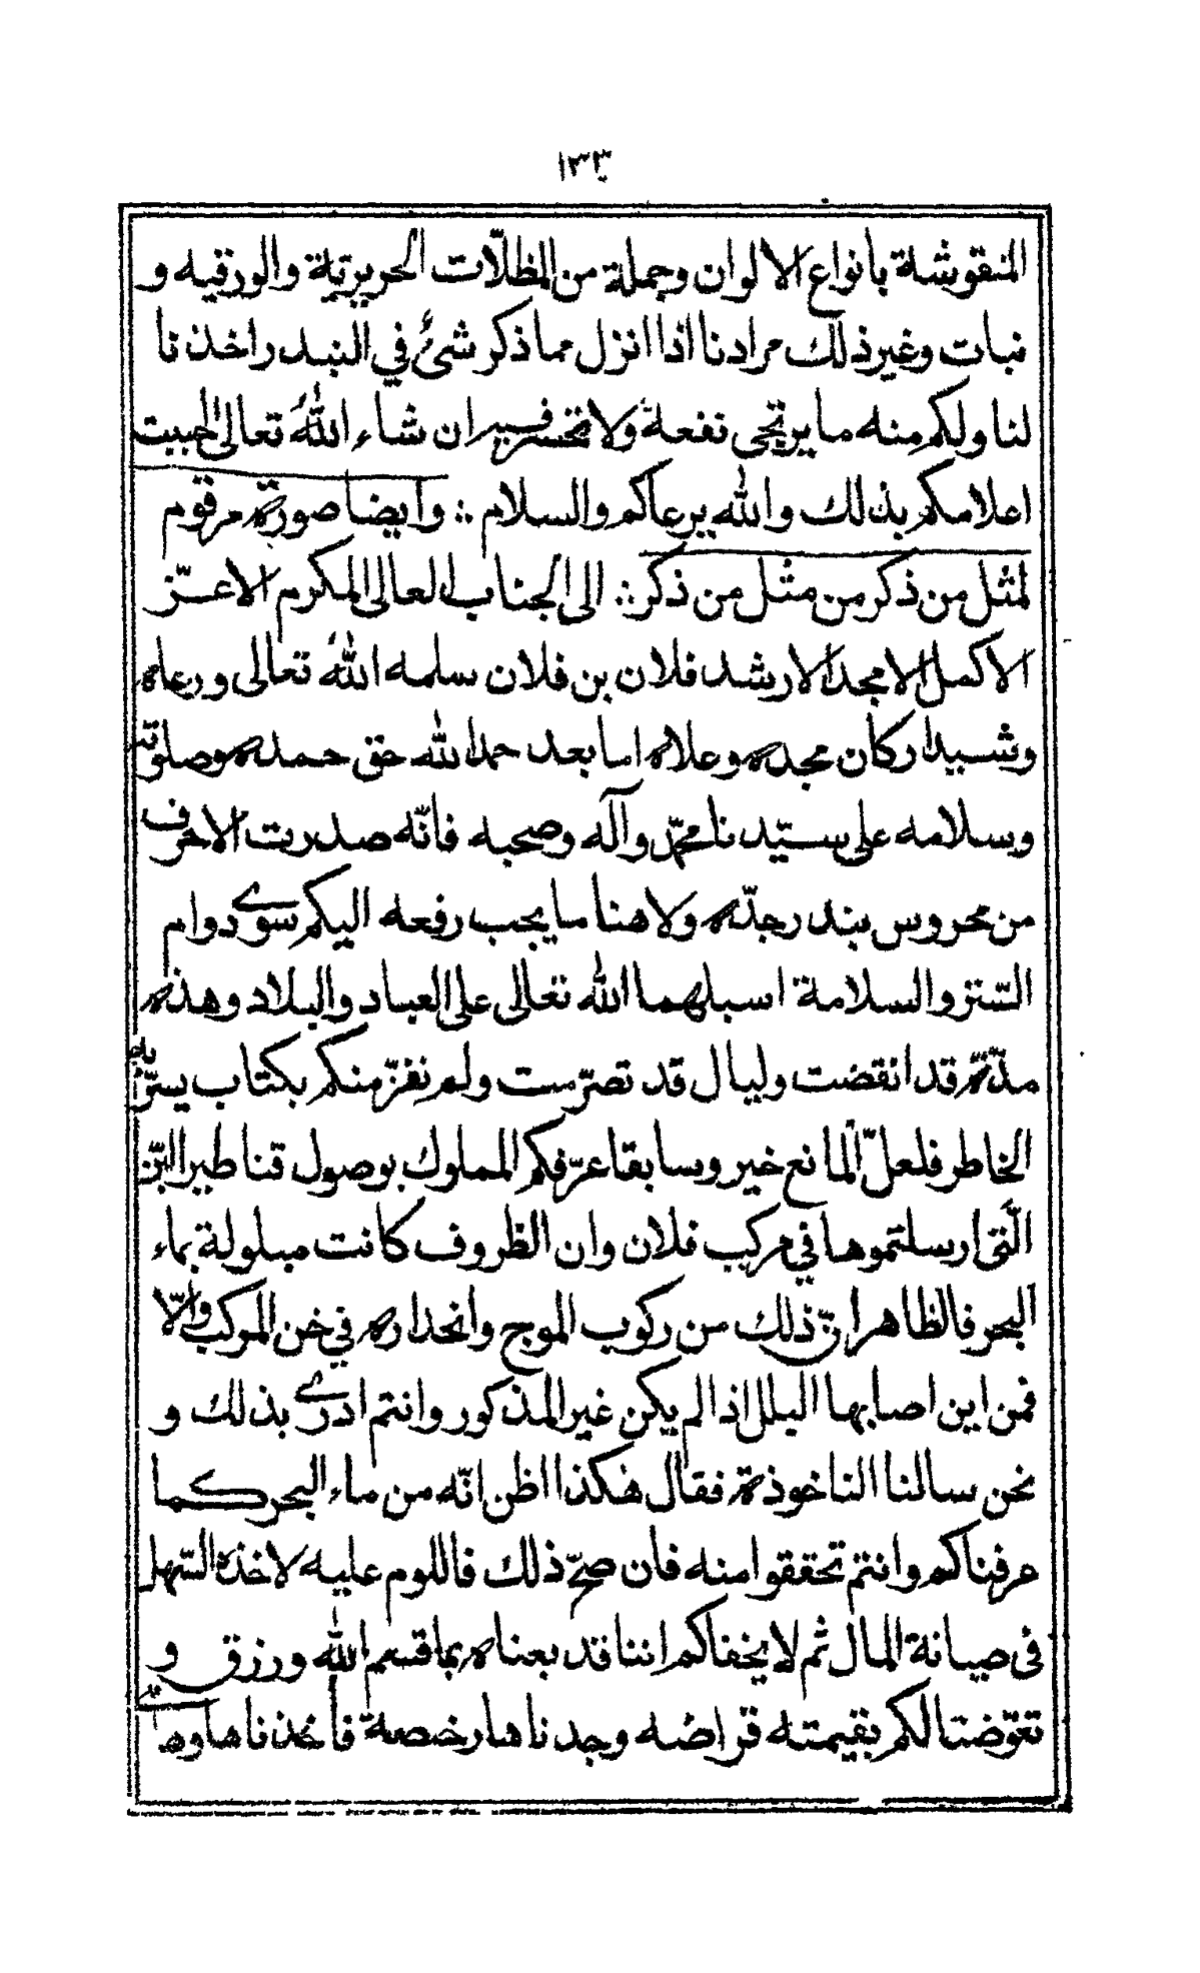 ١٣٣
المنقوشة بأنواع الالوان وجملة من المظلّات الحريريّة والورقيه و
نبات وغير ذلك مرادنا اذا انزل مما ذكر شئ في البندر اخذنا
لنا ولكم منه ما يرتجى نفعة ولا تخسر فيه ان شاء اللهُ تعالى احببت
اعلامكم بذلك والله يرعاكم والسلام ؞ وايضا صورة مرقوم
لمثل من ذكر من مثل من ذكر ؞ الى الجناب العالى المكرم الاعزّ
الاكمل الامجد الارشد فلان بن فلان سلمه اللهُ تعالى ورعاه
وشيد اركان مجده وعلاه اما بعد حمدا لله حق حمده وصلوته
وسلامه على سيّدنا محمّد وآله وصحبه فانّه صدرت الاحرف
من محروس بندر جدّه ولا هنا ما يجب رفعه اليكم سوى دوام
السّتر والسلامة اسبلهما الله تعالى على العباد والبلاد وهذه
مدّة قد انقضت وليال قد تصرّمت ولم نفز منكم بكتاب يسرّ به
الخاطر فلعلّ المانع خير وسابقا عرّفكم المملوك بوصول قناطير البّن
الّتى ارسلتموها في مركب فلان وان الظروف كانت مبلولة بماء
البحر فالظاهر انّ ذلك من ركوب الموج وانحداره في خن المركب والّا
فمن اين اصابها البلل اذا لم يكن غير المذكور وانتم ادرى بذلك و
نحن سالنا الناخوذة فقال هكذا اظن انّه من ماء البحر كما
عرفناكم وانتم تحققوا منه فان صحّ ذلك فاللوم عليه لاخذه السّهل
فى صيانة المال ثم لا يخفاكم اننا قد بعناه بما قسم الله ورزق و
تعوّضنا لكم بقيمته قراضه وجدناها رخصة فأخذناها وهى